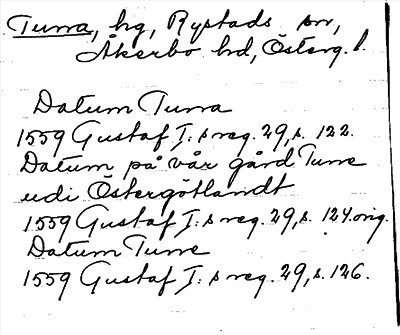 Turra, hg, Rystads sn,
Åkerbo hd, Österg. l.
Datum Turra
1559 Gustaf I:s reg. 29, s. 122.
Datum på vår gård Turre
udi Östergötlandt
1559 Gustaf I:s reg. 29, s. 124. orig.
Datum Turre
1559 Gustaf I:s reg. 29, s. 126.